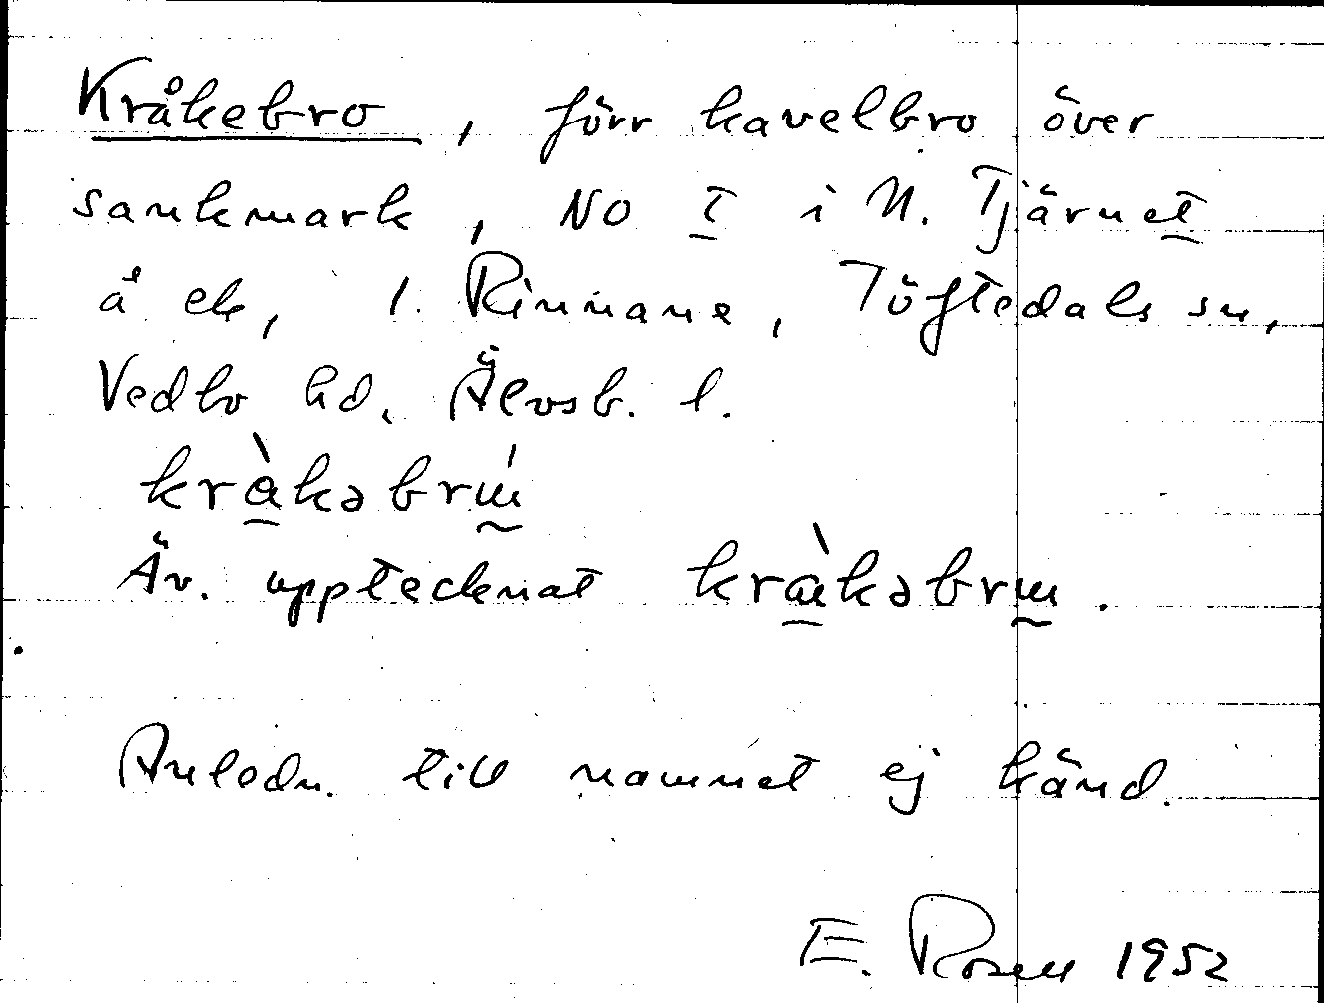 Kråkebro, förr kavelbro över
sankmark, NO T i N. Tjärnet
å ek, 1. Rinnane, Töftedals sn,
Vedbo hd. Älvsb. l.
kràkəbrɯ́
Äv. upptecknat kràkəbrɯ.
Anledn. till namnet ej känd.
E. Rosell 1952